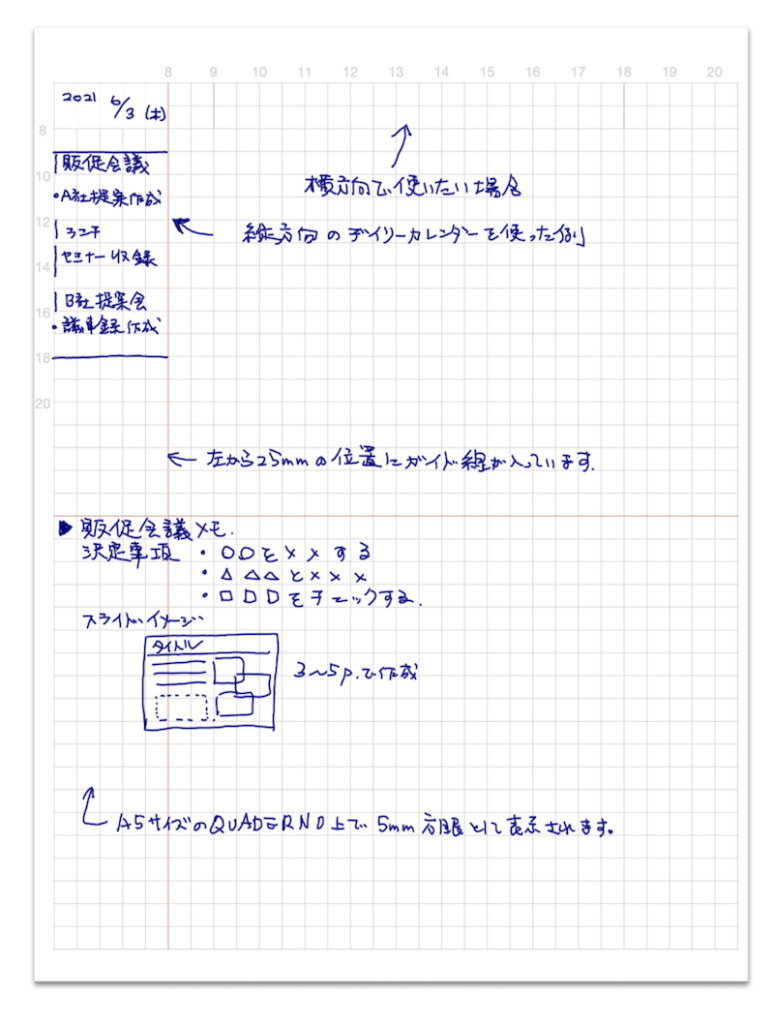 8 9 10 11 12 13 14 15 16 17 18 19 20
2021 6/3 (木)
8
販促会議
10
・A社提案作成
横方向で使いたい場合
12
ランチ
縦方向のデイリーカレンダーを使った例
セミナー収録
14
B社提案会
16
・議事録作成
18
20
← 左から25mmの位置にガイド線が入っています.
▶ 販促会議メモ.
決定事項 ・○○を××する
・△△△と×××
・□□□をチェックする.
スライドイメージ
タイトル
3〜5p.で作成
A5サイズのQUADERNO上で5mm方眼として表示されます。